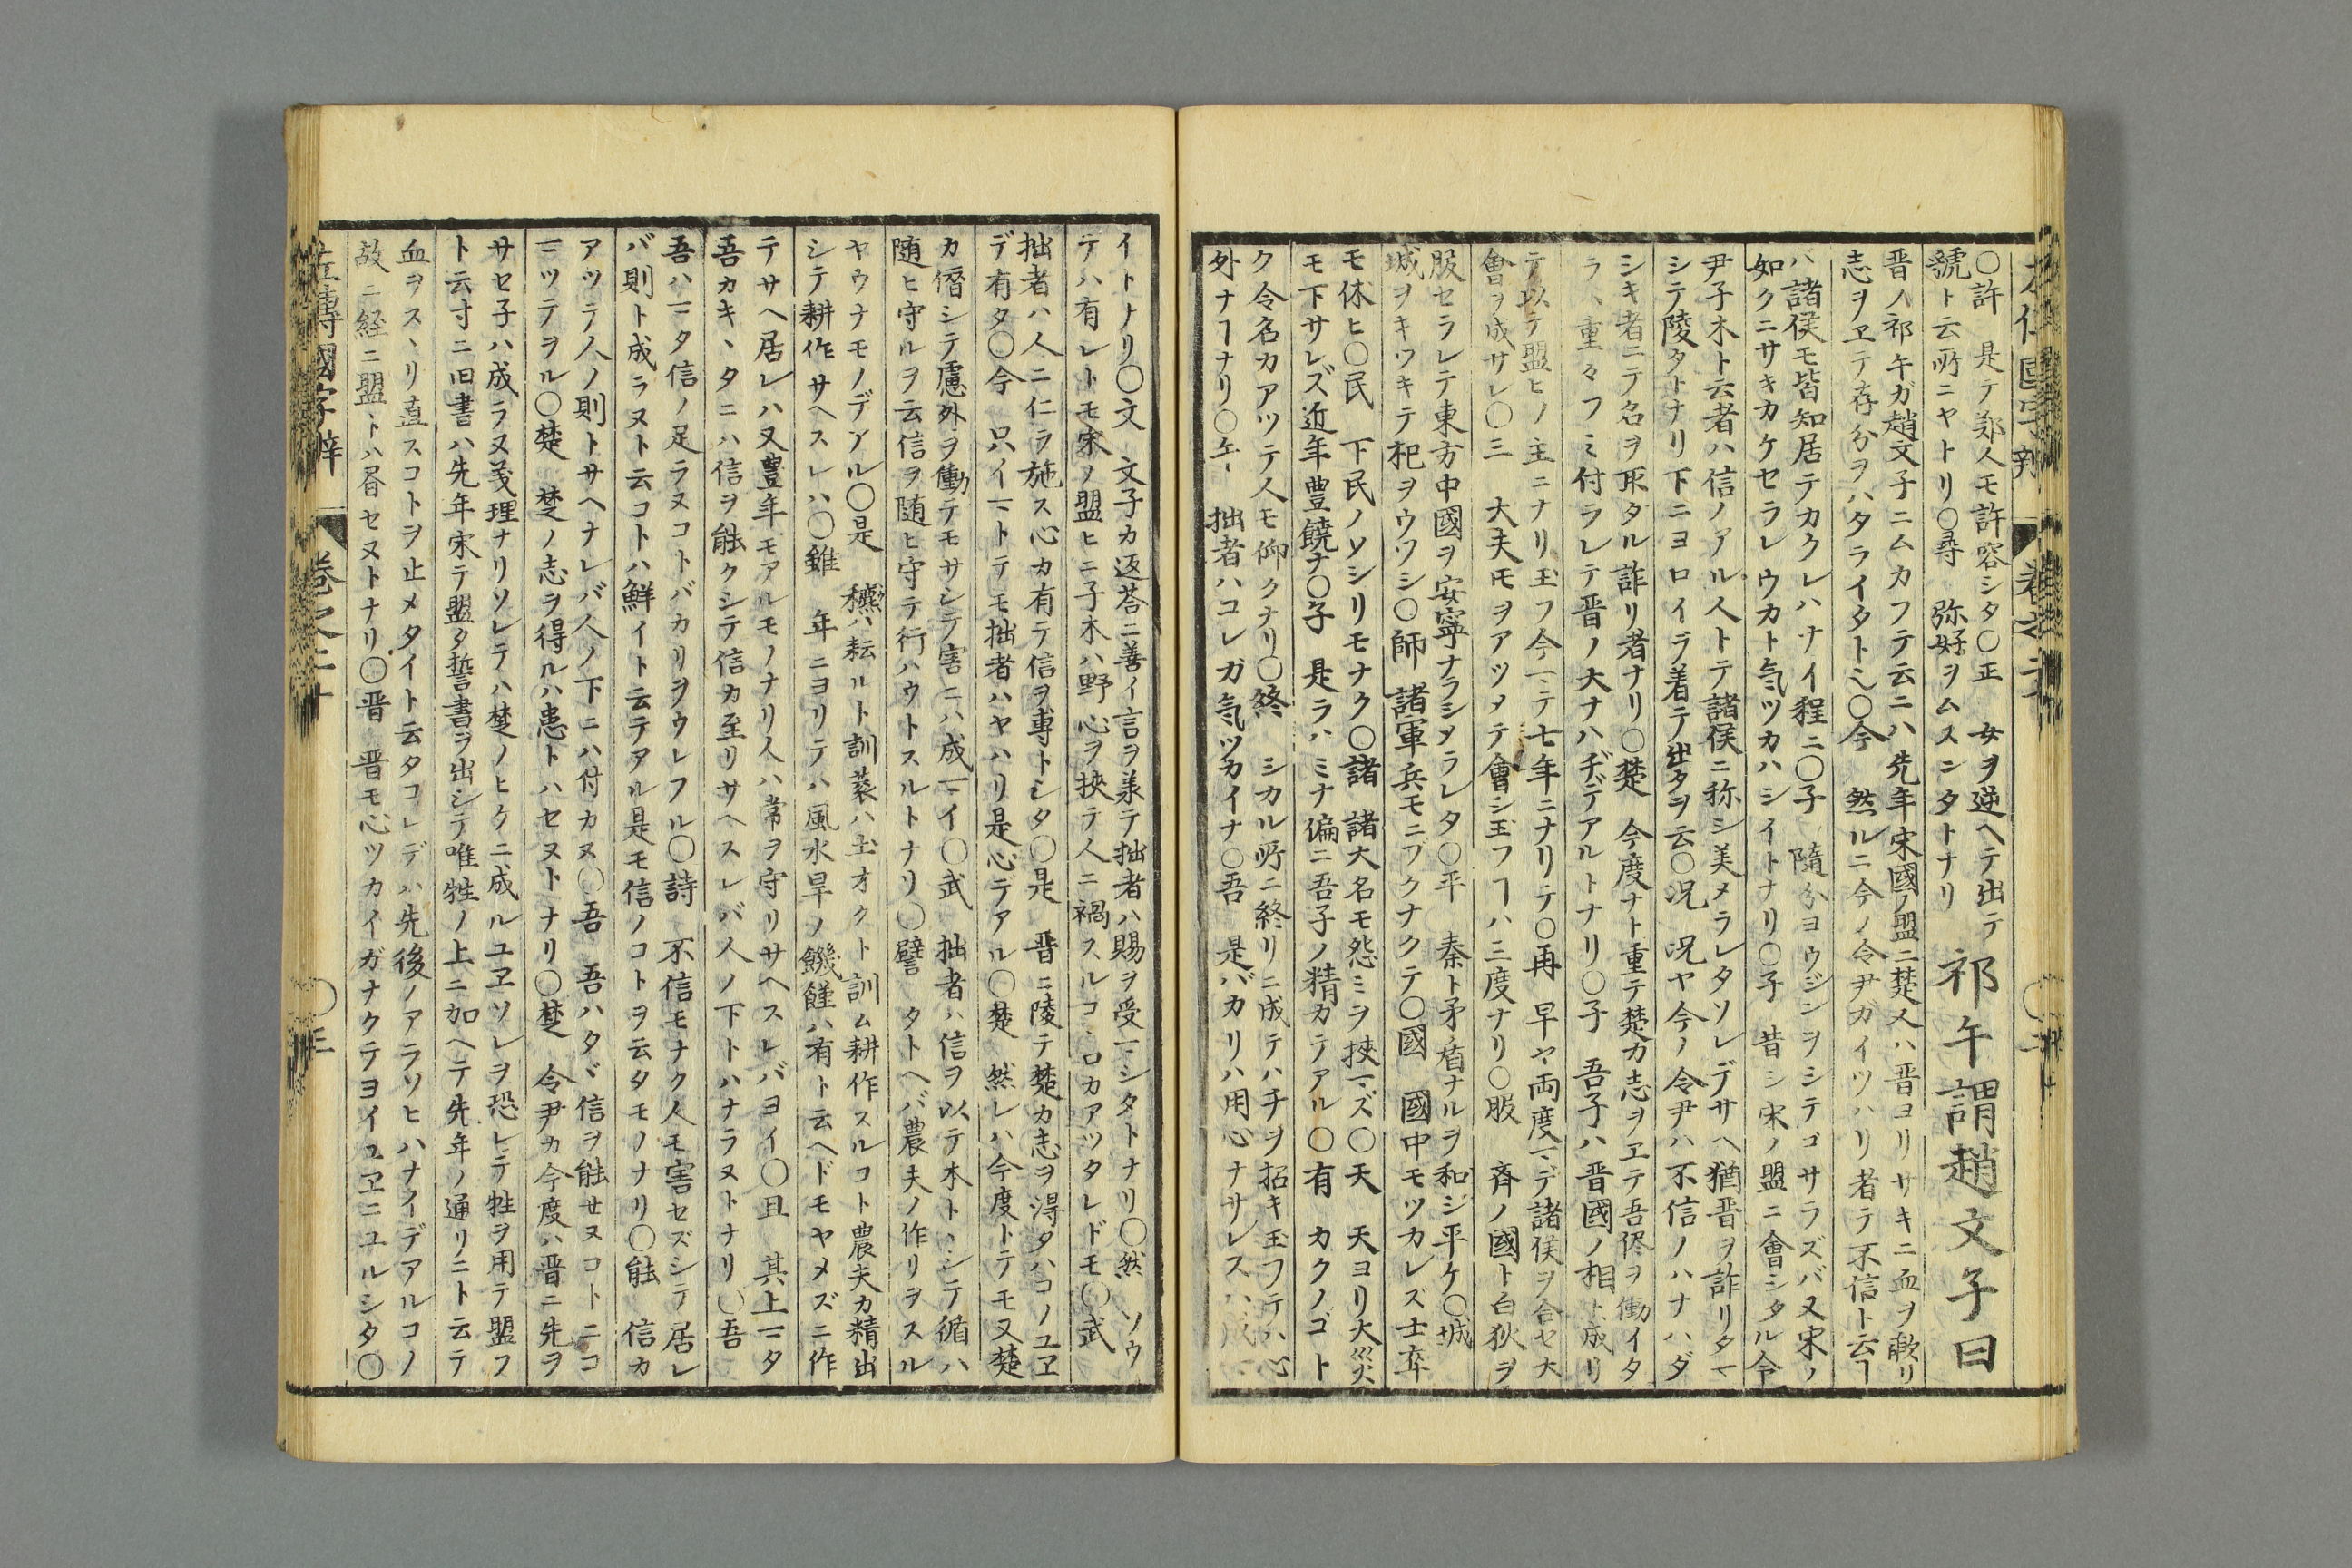 〇許　是テ鄭人モ許容シタ〇正　女ヲ逆ヘテ出テ
虢ト云所ニヤトリ〇尋　弥好ヲムスンタトナリ
祁午謂趙文子曰
晋ノ祁午ガ趙文子ニムカフテ云ニハ先年宋國ノ盟ニ楚人ハ晋ヨリサキニ血ヲ歃リ
志ヲヱテ存分ヲハタライタト也〇今　然ルニ今ノ令尹ガイツハリ者テ不信ト云ヿ
ハ諸侯モ皆知居テカクレハナイ程ニ〇子　隨分ヨウジンヲシテゴサラズバ又宋ノ
如クニサキカケセラレウカト気ツカハシイトナリ〇子　昔シ宋ノ盟ニ會シタル令
尹子木ト云者ハ信ノアル人トテ諸侯ニ称シ美メラレタソレデサヘ猶晋ヲ詐リタマ
シテ陵タトナリ下ニヨロイラ着テ出タヲ云〇况　况ヤ今ノ令尹ハ不信ノハナハダ
シキ者ニテ名ヲ取タル詐リ者ナリ〇楚　今度ナト重テ楚カ志ヲヱテ吾侭ヲ働イタ
ラハ重々フミ付ラレテ晋ノ大ナハヂデアルトナリ〇子　吾子ハ晋國ノ相ト成リ
テ以テ盟ヒノ主ニナリ玉フ今マテ七年ニナリテ〇再　早ヤ両度マデ諸侯ヲ合セ大
會ヲ成サレ〇三　大夫モヲアツメテ會シ玉フヿハ三度ナリ〇服　斉ノ國ト白狄ヲ
服セラレテ東方中國ヲ安寧ナラシメラレタ〇平　秦ト矛盾ナルヲ和ジ平ケ〇城
城ヲキワキテ杞ヲウツシ〇師　諸軍兵モニブクナクテ〇國　國中モツカレズ士卒
モ休ヒ〇民　下民ノソシリモナク〇諸　諸大名モ怨ミヲ挾マズ〇天　天ヨリ大災
モ下サレズ近年豊饒ナ〇子　是ラハミナ偏ニ吾子ノ精カテアル〇有　カクノゴト
ク令名カアツテ人モ仰クナリ〇終　シカル所ニ終リニ成テハチヲ招キ玉フテハ心
外ナヿナリ〇午　拙者ハコレガ気ツカイナ〇吾　是バカリハ用心ナサレスハ成
イトナリ〇文　文子カ返荅ニ善イ言ヲ承テ拙者ハ賜ヲ受マシタトナリ〇然　ソウ
テハ有レトモ宋ノ盟ヒニ子木ハ野心ヲ挾テ人ニ禍スルコヽロカアツタレドモ〇武
拙者ハ人ニ仁ヲ施ス心カ有テ信ヲ専トシタ〇是　晋ニ陵テ楚カ志ヲ得タハコノユヱ
デ有タ〇今　只イマトテモ拙者ハヤハリ是心デアル〇楚　然レハ今度トテモ又楚
カ僭シテ慮外ヲ働テモサシテ害ニハ成マイ〇武　拙者ハ信ヲ以テ本トヽシテ循ハ
随ヒ守ルヲ云信ヲ随ヒ守テ行ハウトスルトナリ〇譬　タトヘバ農夫ノ作リヲスル
ヤウナモノデアル〇是　穮ハ耘ルト訓蓘ハ土オクト訓ム耕作スルコト農夫カ精出
シテ耕作サヘスレハ〇雖　年ニヨリテハ風水旱ノ饑饉ハ有ト云ヘドモヤメズニ作
テサヘ居レハ又豊年モアルモノナリ人ハ常ヲ守リサヘスレバヨイ〇且　其上マタ
吾カキヽタニハ信ヲ能クシテ信カ至リサヘスレバ人ノ下トハナラヌトナリ〇吾
吾ハマタ信ノ足ラヌコトバカリヲウレフル〇詩　不信モナク人モ害セズシテ居レ
バ則ト成ラヌト云コトハ鮮イト云テアル是モ信ノコトヲ云タモノナリ〇能　信カ
アツテ人ノ則トサヘナレバ人ノ下ニハ付カヌ〇吾　吾ハタヾ信ヲ能サヌコトニコ
マツテヲル〇楚　楚ノ志ヲ得ルハ患トハセヌトナリ〇楚　令尹カ今度ハ晋ニ先ヲ
サセ子ハ成ラヌ義理ナリソレテハ楚ノヒケニ成ルユヱソレヲ恐レテ牲ヲ用テ盟フ
ト云寸ニ旧書ハ先年宋テ盟タ誓書ヲ出シテ唯牲ノ上ニ加ヘテ先年ノ通リニト云テ
血ヲスヽリ直スコトヲ止メタイト云タコレデハ先後ノアラソヒハナイデアルコノ
故ニ経ニ盟トハ書セヌトナリ〇晋　晋モ心ツカイガナクテヨイユヱニユルシタ〇
左傳國字辯　卷之二十　〇三